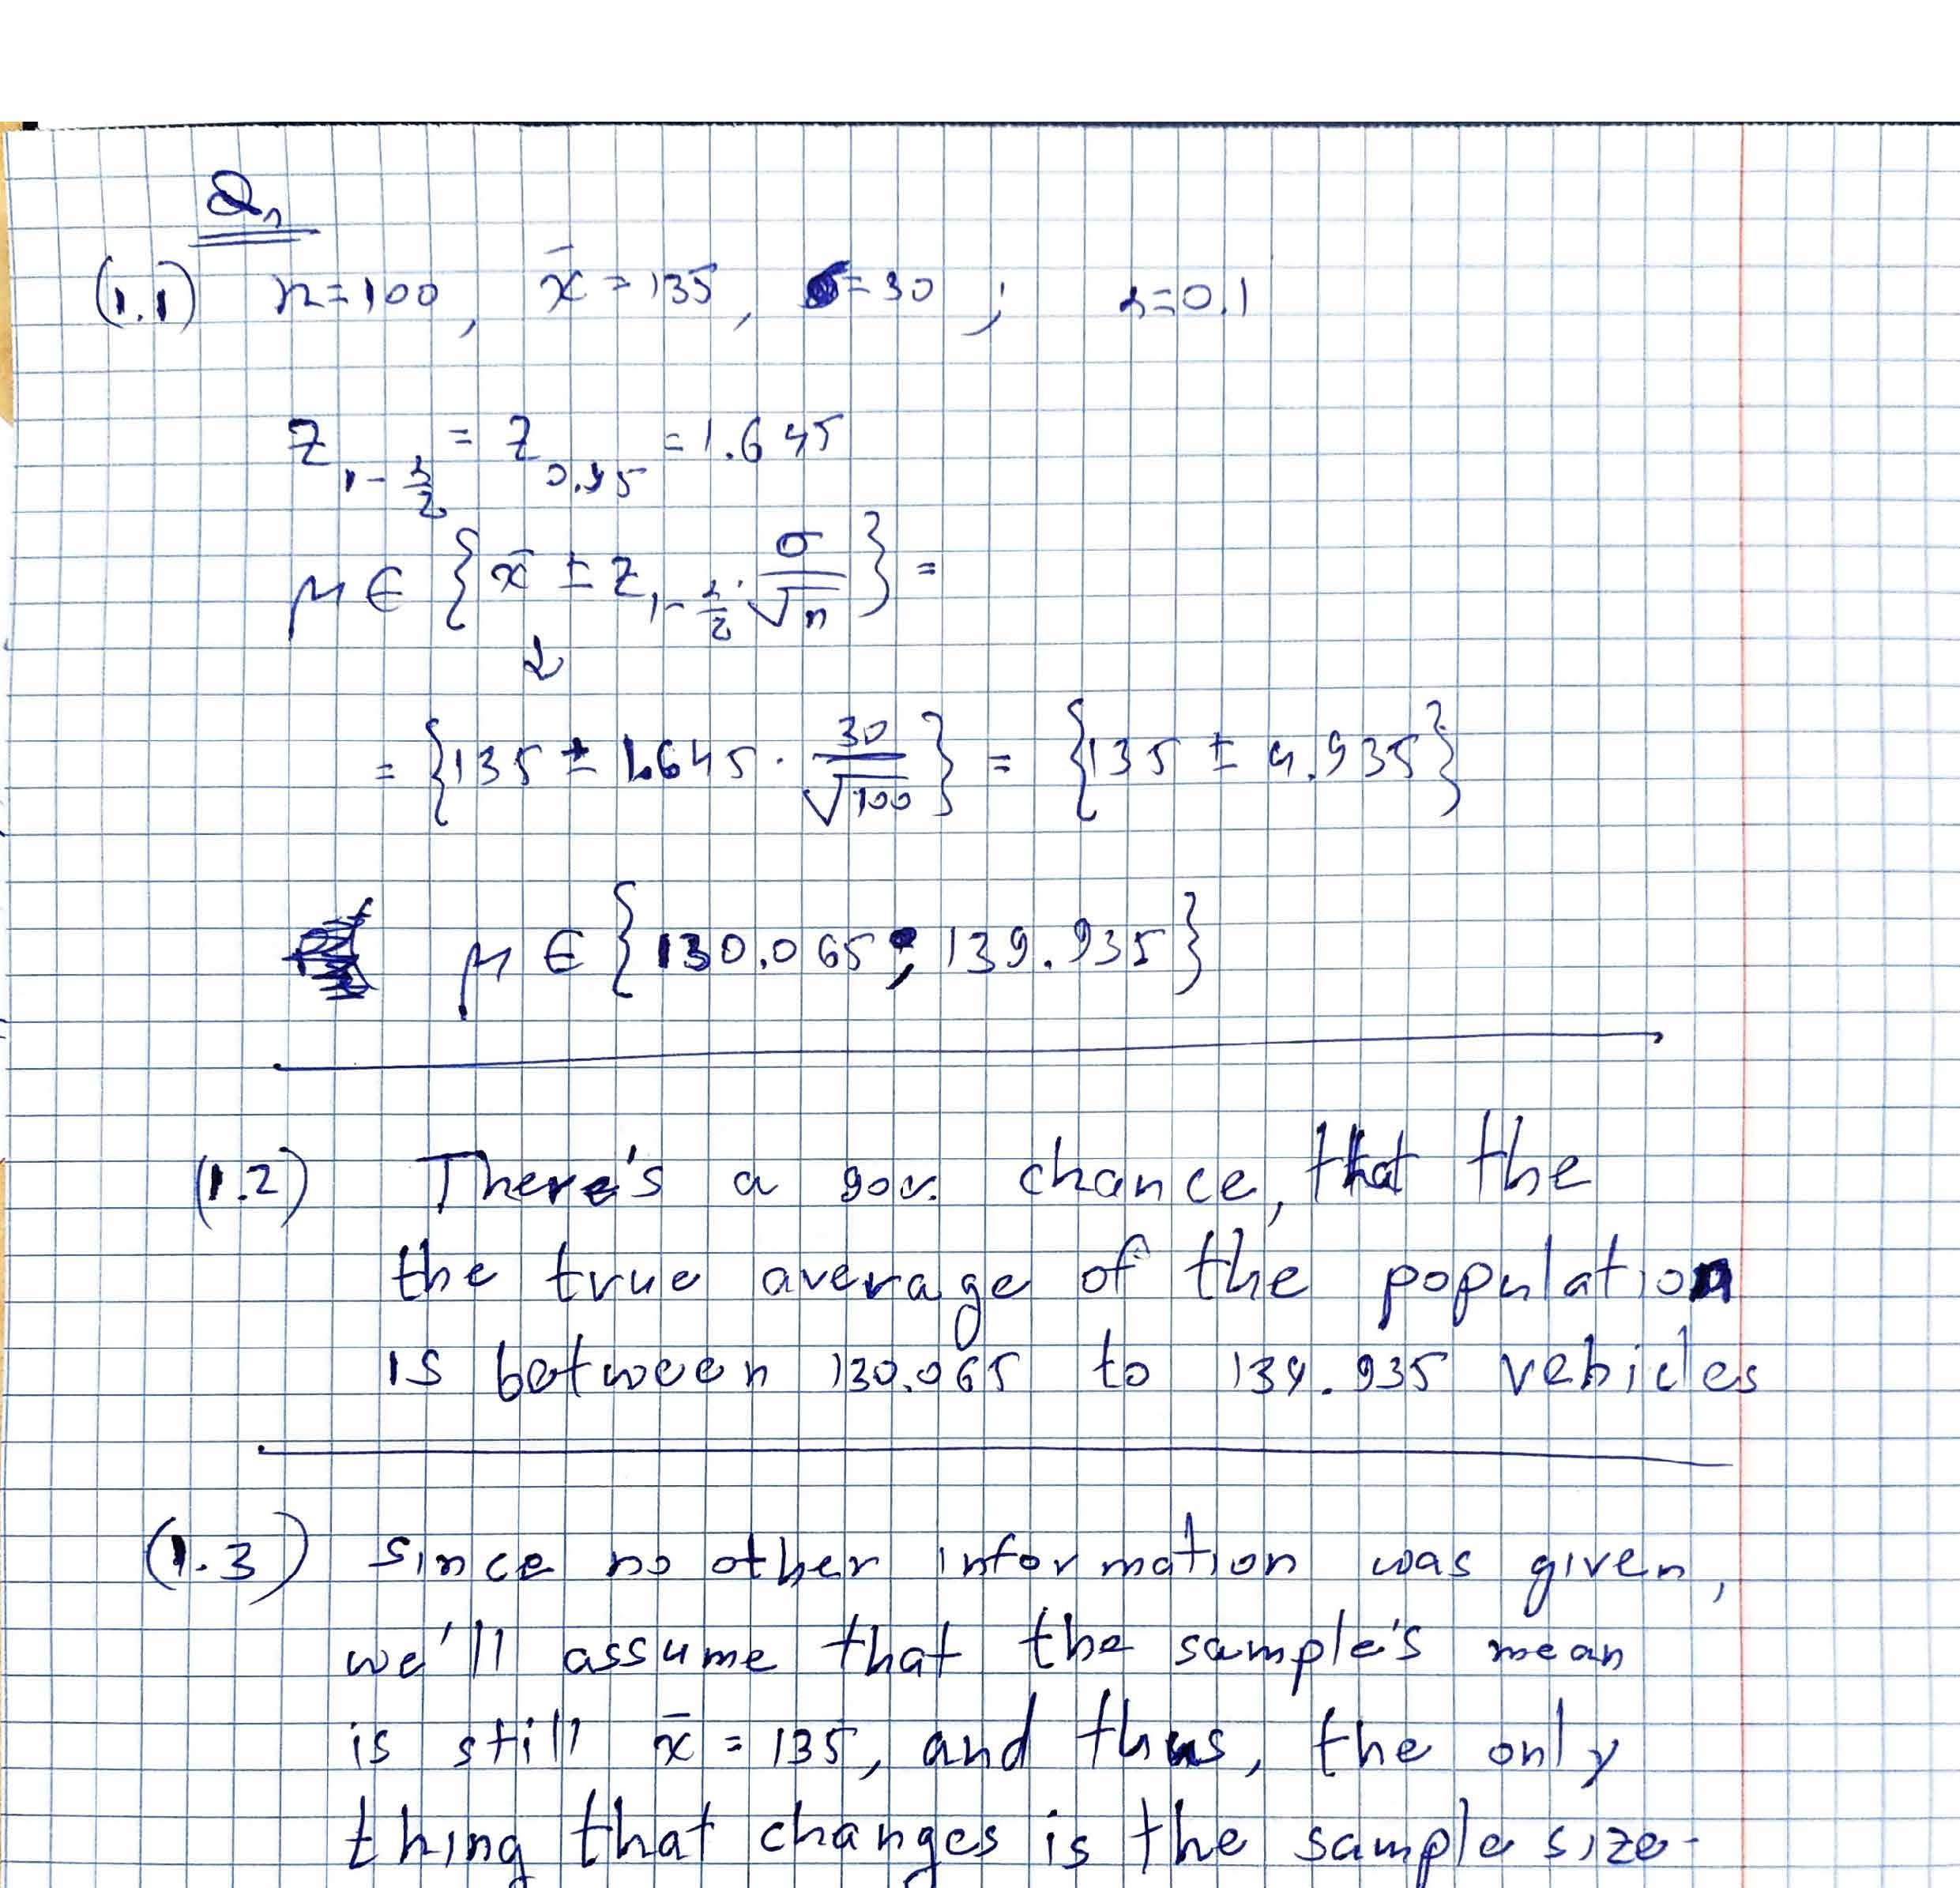 Q1
(1.1) n=100, x̄=135, σ=30; α=0.1
Z_{1-α/2} = Z_{0.95} = 1.645
μ ∈ {x̄ ± Z_{1-α/2} · σ/√n} =
↓
= {135 ± 1.645 · 30/√100} = {135 ± 4.935}
μ ∈ {130.065; 139.935}
(1.2) There's a 90% chance, that the
the true average of the population
is between 130.065 to 139.935 vehicles
(1.3) Since no other information was given,
we'll assume that the sample's mean
is still x̄ = 135, and thus, the only
thing that changes is the sample size-